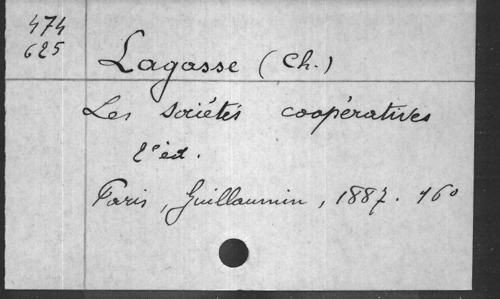 474
625
Lagasse (Ch.)
Les sociétés coopératives
2e éd.
Paris, Guillaumin, 1887. 16o